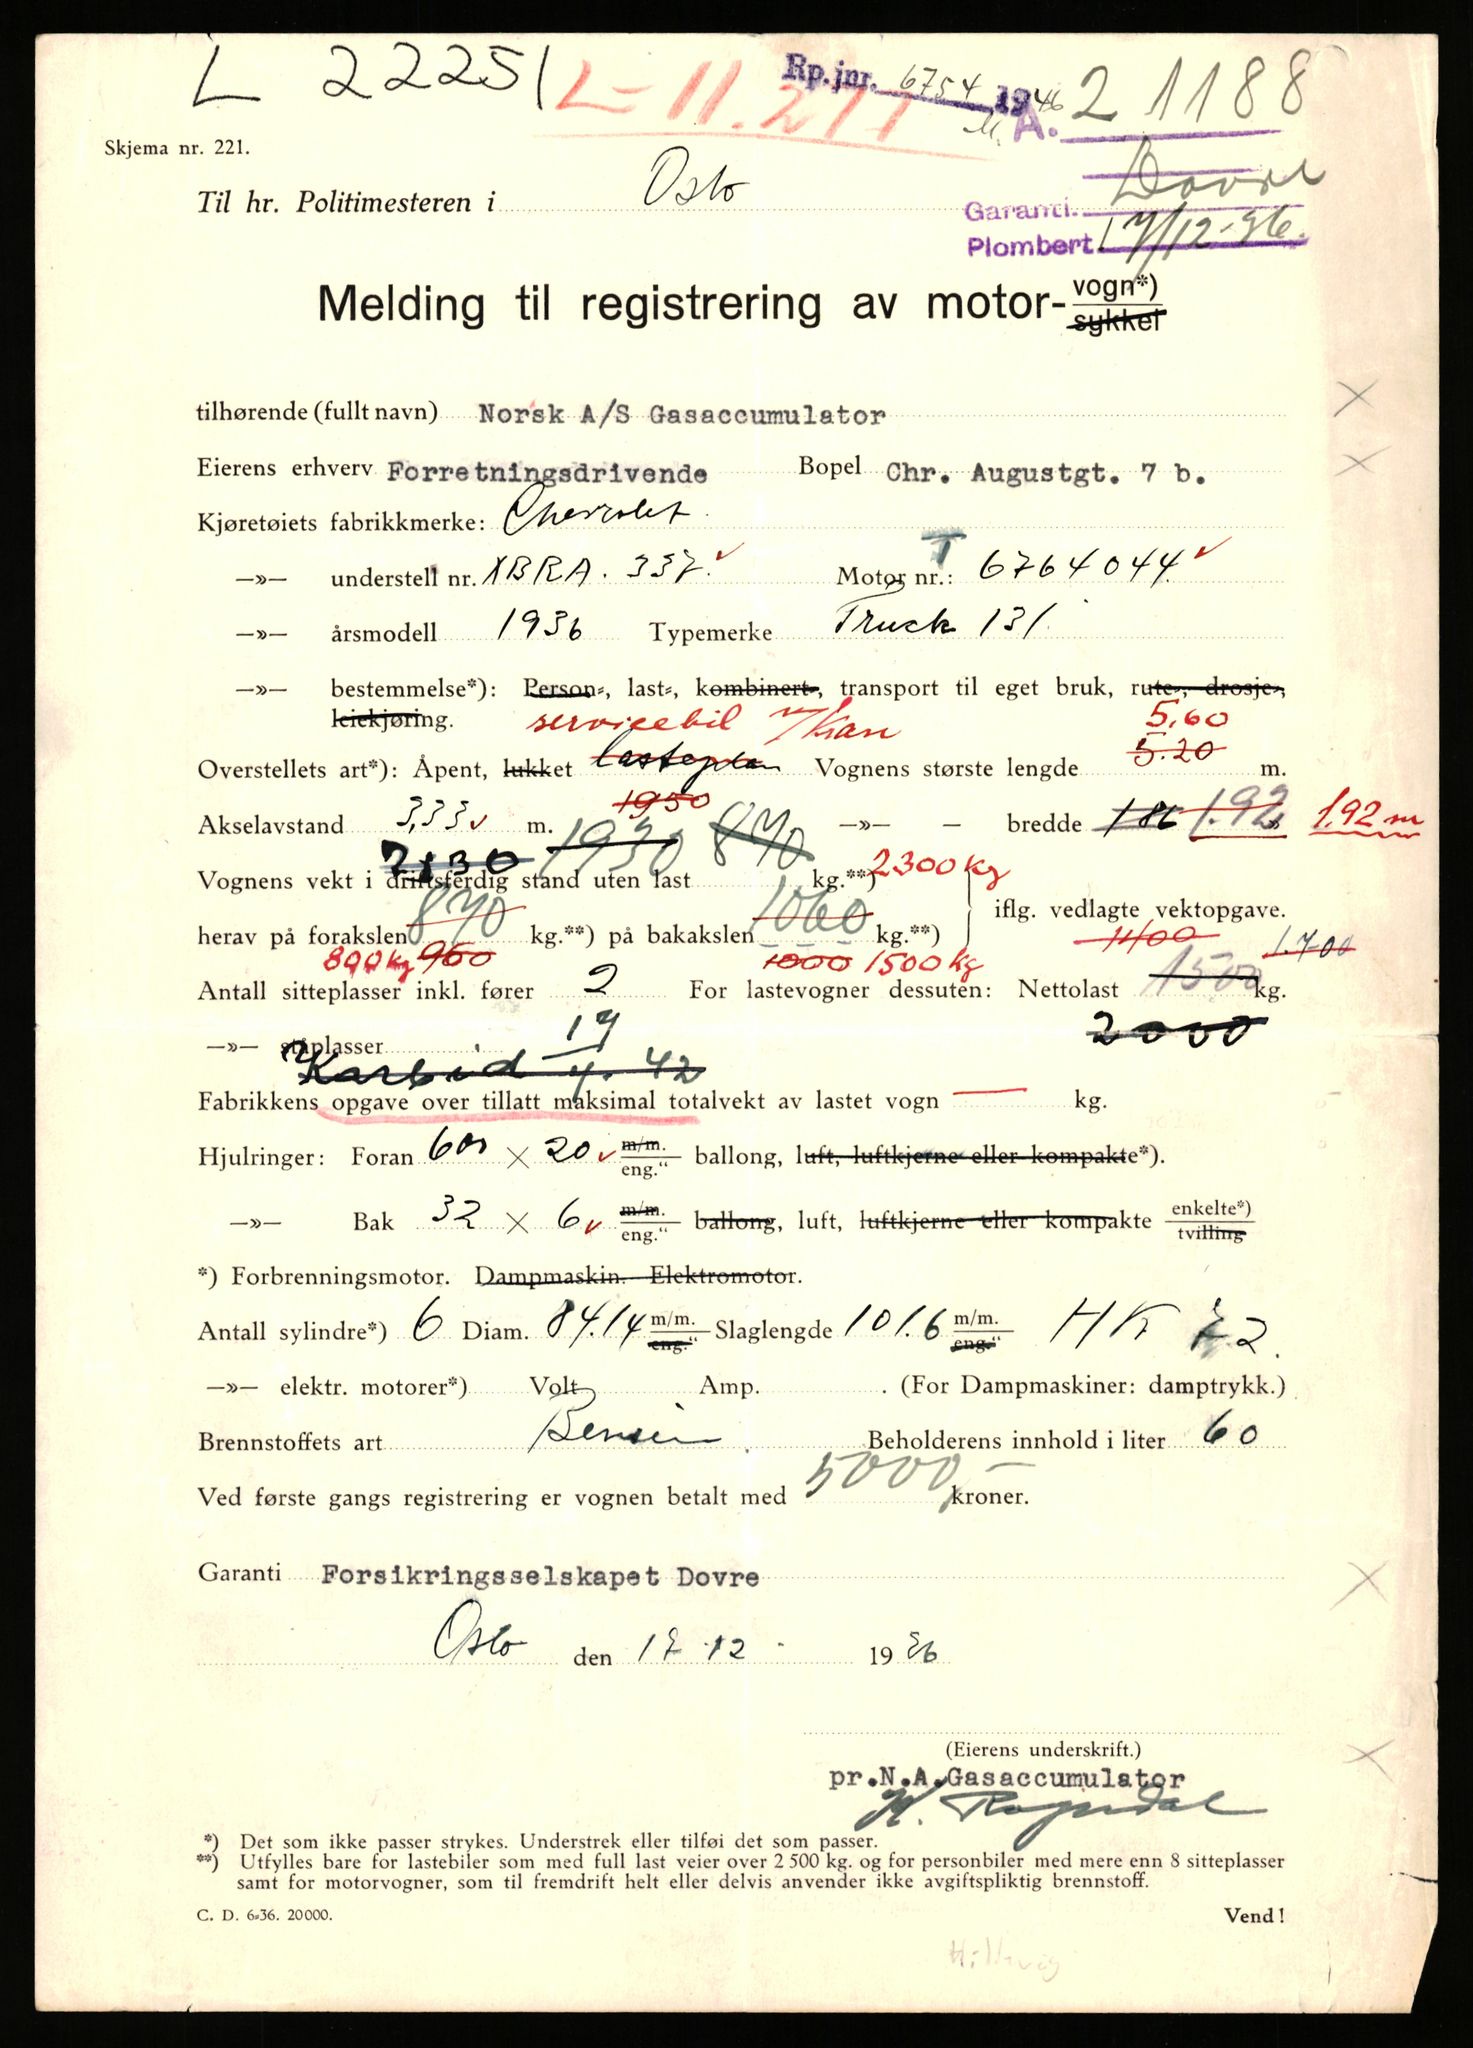 L 22251
L-11.211
Rp.jnr. 6754 1946
A. 21188
Skjema nr. 221.
Dovre
Til hr. Politimesteren i Oslo
Garanti.
Plombert 17/12-36.
Melding til registrering av motor- vogn*)
sykkel
tilhørende (fullt navn) Norsk A/S Gasaccumulator
Eierens erhverv Forretningsdrivende Bopel Chr. Augustgt. 7 b.
Kjøretøiets fabrikkmerke: Chevrolet
—»— understell nr. XBRA. 337. Motor nr.: T 6764044
—»— årsmodell 1936 Typemerke Truck 131
—»— bestemmelse*): Person-, last-, kombinert-, transport til eget bruk, rute-, drosje-,
kiekjøring. servicebil m/kran 5.60
Overstellets art*): Åpent, lukket lasteplan Vognens største lengde 5.20 m.
1950
Akselavstand 3,33 m. —»— — bredde 186 1.92 » 1.92 m
2130 1930 870 2300 kg
Vognens vekt i driftsferdig stand uten last kg.**)
iflg. vedlagte vektopgave.
herav på forakslen 870 kg.**) på bakakslen 1060 kg.**)
800 kg 950 1000 1500 kg 1400 1.700
Antall sitteplasser inkl. fører 2 For lastevogner dessuten: Nettolast 1500 kg.
—»— ståplasser 2000
Karbid 17/4. 42
Fabrikkens opgave over tillatt maksimal totalvekt av lastet vogn — kg.
Hjulringer: Foran 600 × 20 m/m. eng.“ ballong, luft, luftkjerne eller kompakte*).
—»— Bak 32 × 6 m/m. eng.“ ballong, luft, luftkjerne eller kompakte enkelte*) tvilling
*) Forbrenningsmotor. Dampmaskin. Elektromotor.
Antall sylindre*) 6 Diam. 84.14 m/m. eng.“ Slaglengde 101.6 m/m. eng.“ HK 22.
—»— elektr. motorer*) Volt Amp. . (For Dampmaskiner: damptrykk.)
Brennstoffets art Bensin Beholderens innhold i liter 60
Ved første gangs registrering er vognen betalt med 5000,— kroner.
Garanti Forsikringsselskapet Dovre
Oslo den 17.12 1936
(Eierens underskrift.)
pr.N.A.Gasaccumulator
*) Det som ikke passer strykes. Understrek eller tilføi det som passer.
**) Utfylles bare for lastebiler som med full last veier over 2 500 kg. og for personbiler med mere enn 8 sitteplasser
samt for motorvogner, som til fremdrift helt eller delvis anvender ikke avgiftspliktig brennstoff.
C. D. 6-36. 20000.
Vend!
Hillevig